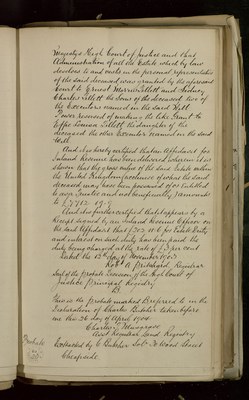 Majesty's High Court of Justice and that
Administration of all the Estate which by law
devolves to and vests in the personal representative
of the said deceased was granted by the aforesaid
Court to Ernest Morris Lilott and Sidney
Charles the Sons of the deceased two of
the Executors named in the said Will
Power reserved of making the like Grant to
Effie the daughter of the
deceased the other Executor named in the said
Will
And it is hereby certified that an Affidavit for
Inland Revenue has been delivered wherein it is
shewn that the gross value of the said Estate within
the United Kingdom (exclusive of what the said
deceased may have been possessed of or entitled
to as a Trustee and not beneficially) amounts
to £
And it is further certified that it appears by a
Receipt signed by an Inland Revenue Officer on
the said Affidavit that £ for Estate Duty
and interest on such duty has been paid the
duty being charged at the rate of £3 per cent
Dated the day of November 1903
Pritchard Registrar
Seal of the Probate Division of the High Court of
Justice Principal Registry
B
This is the probate marked B referred to in the
Declaration of Charles Butcher taken before
me this 26 day of April 1904
Charles
Asst Registrar Land Registry
Probate
Lodged by C Butcher Solr Wood Street
Cheapside